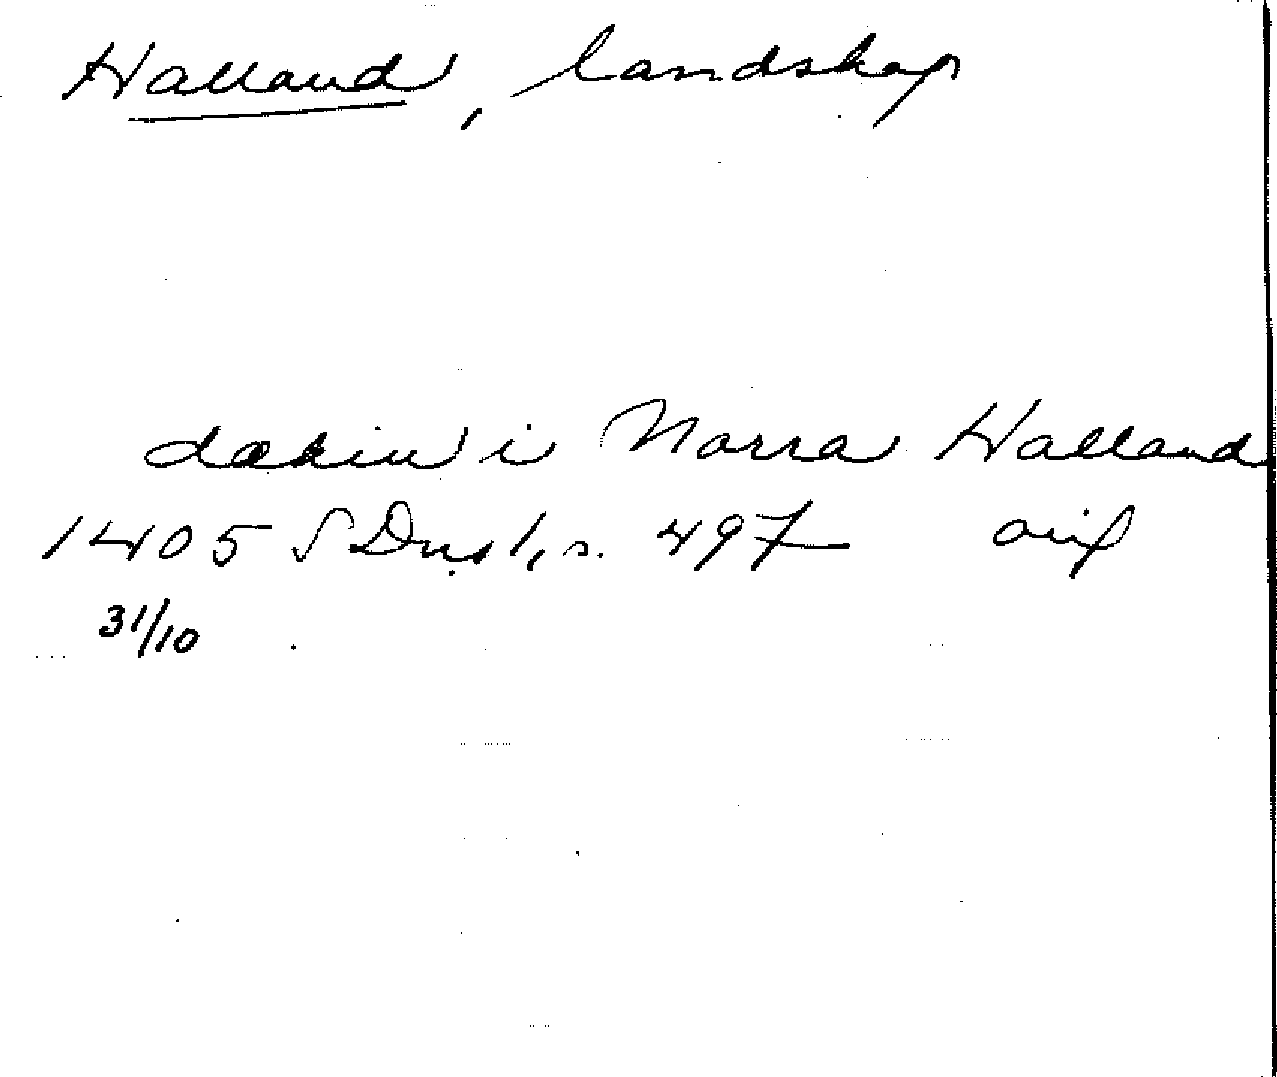 Halland, landskap
dækin i Norra Halland
1405 SD ns 1, s. 497 orig
31/10